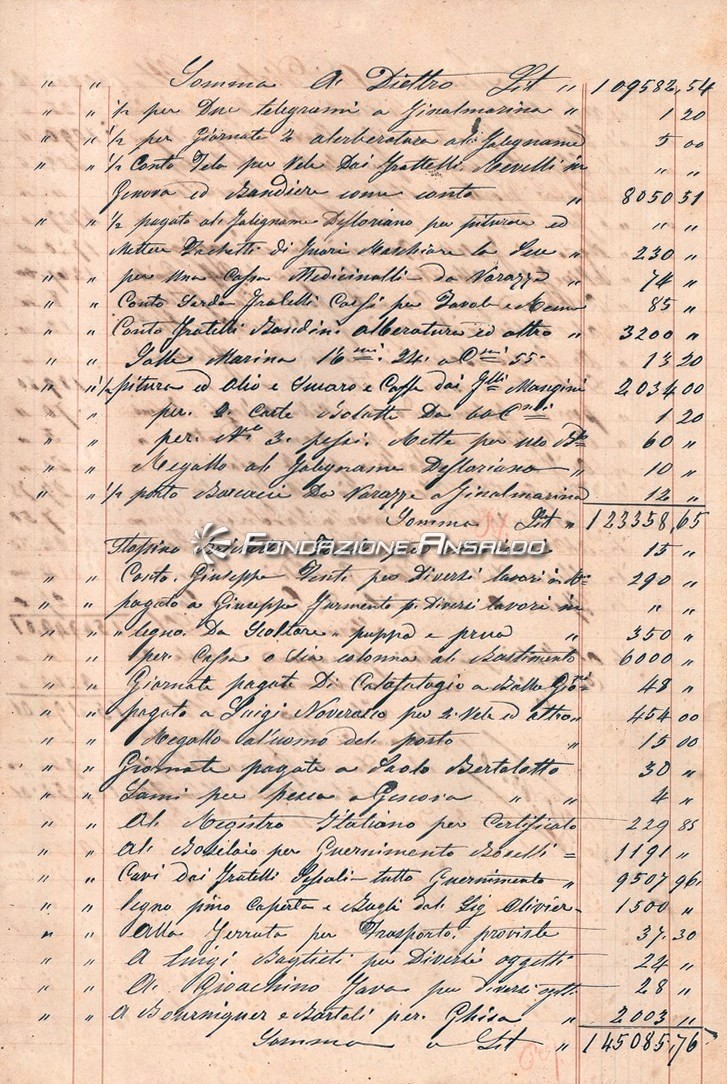 " " Somma A Diettro Lit " 109582,54
" " ½ per Due telegrammi a Finalmarina " 1 20
" " ½ per Giornate 2 alerberatura al falegname 5 00
" " ½ Conto Tela per Vele Dai Frattelli in " "
" " Genova ed Bandiere come conto " 8050 51
" " ½ pagato al falegname Defloriano per piturare ed " "
" " Mettere di fuori la " 230 "
" " per Una Cassa Medicinalli da Varazze " 74 "
" " Conto Fratelli per e 85 "
" " Conto Fratelli Bandini alberatura ed altro " 3200 "
" " Marina 16 24. a C.mi 55 " 13 20
" " ½ pitura ed Olio e e dai F.lli Mangini 2034 00
" " per 2. Carte Da 60 C.mi 1 20
" " per N.o 3. pessi. per uso 60 "
" " Regallo al falegname Defloriano " 10 "
" " ½ porto Da Varazze a Finalmarina 12 "
Somma Lit " 123358,65
FONDAZIONE ANSALDO
15 "
" " Conto. Giuseppe per Diversi lavori 290 "
" " pagato a Giuseppe p. Diversi lavori in " "
" " legno Da Scoltore " puppa e prua " 350 "
" " per Cassa o sia colonna al Bastimento 6000 "
" " Giornate pagate Di Calafatagio a 48 "
" " pagato a Luigi Noverasco per 2. Vele ed altro " 454 00
" " Regallo al'uomo del porto " 15 00
" " Giornate pagate a Paolo Bertolotto 30 "
" " per pesca a Genova " " 4 "
" " Al Registro Italiano per Certificato 229 85
" " Al per Guernimento = 1191 "
" " Cavi dai Fratelli tutto Guernimento " 9507 96.
" " legno pino Caperta e Bagli dal Sig Olivier 1500 "
" " Alla Ferrata per Trasporto proviste 37.30
" " A Luigi per Diversi oggetti 24 "
" " Al Gioachino per Diversi 28 "
" " A e Bartoli per. Ghisa " 2003 "
Somma a Lit " 145085,76